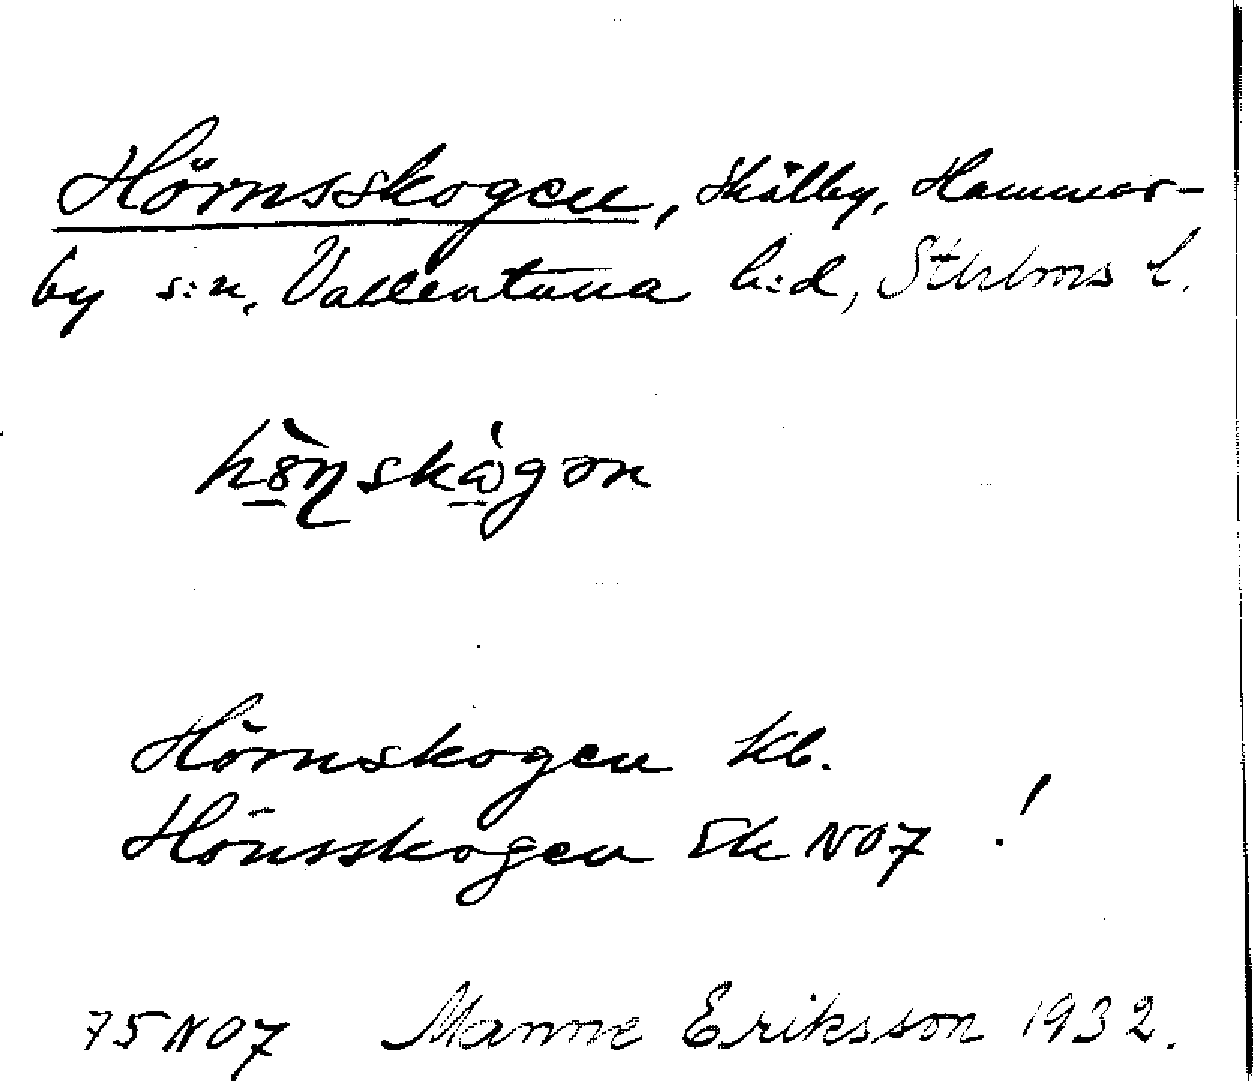 Hörnsskogen, Skålby, Hammar-
by s:n, Vallentuna h:d, Sthlms l.
Hörnskogen kb.
Hönsskogen Ek NO7 !
75 NO7 Manne Eriksson 1932.